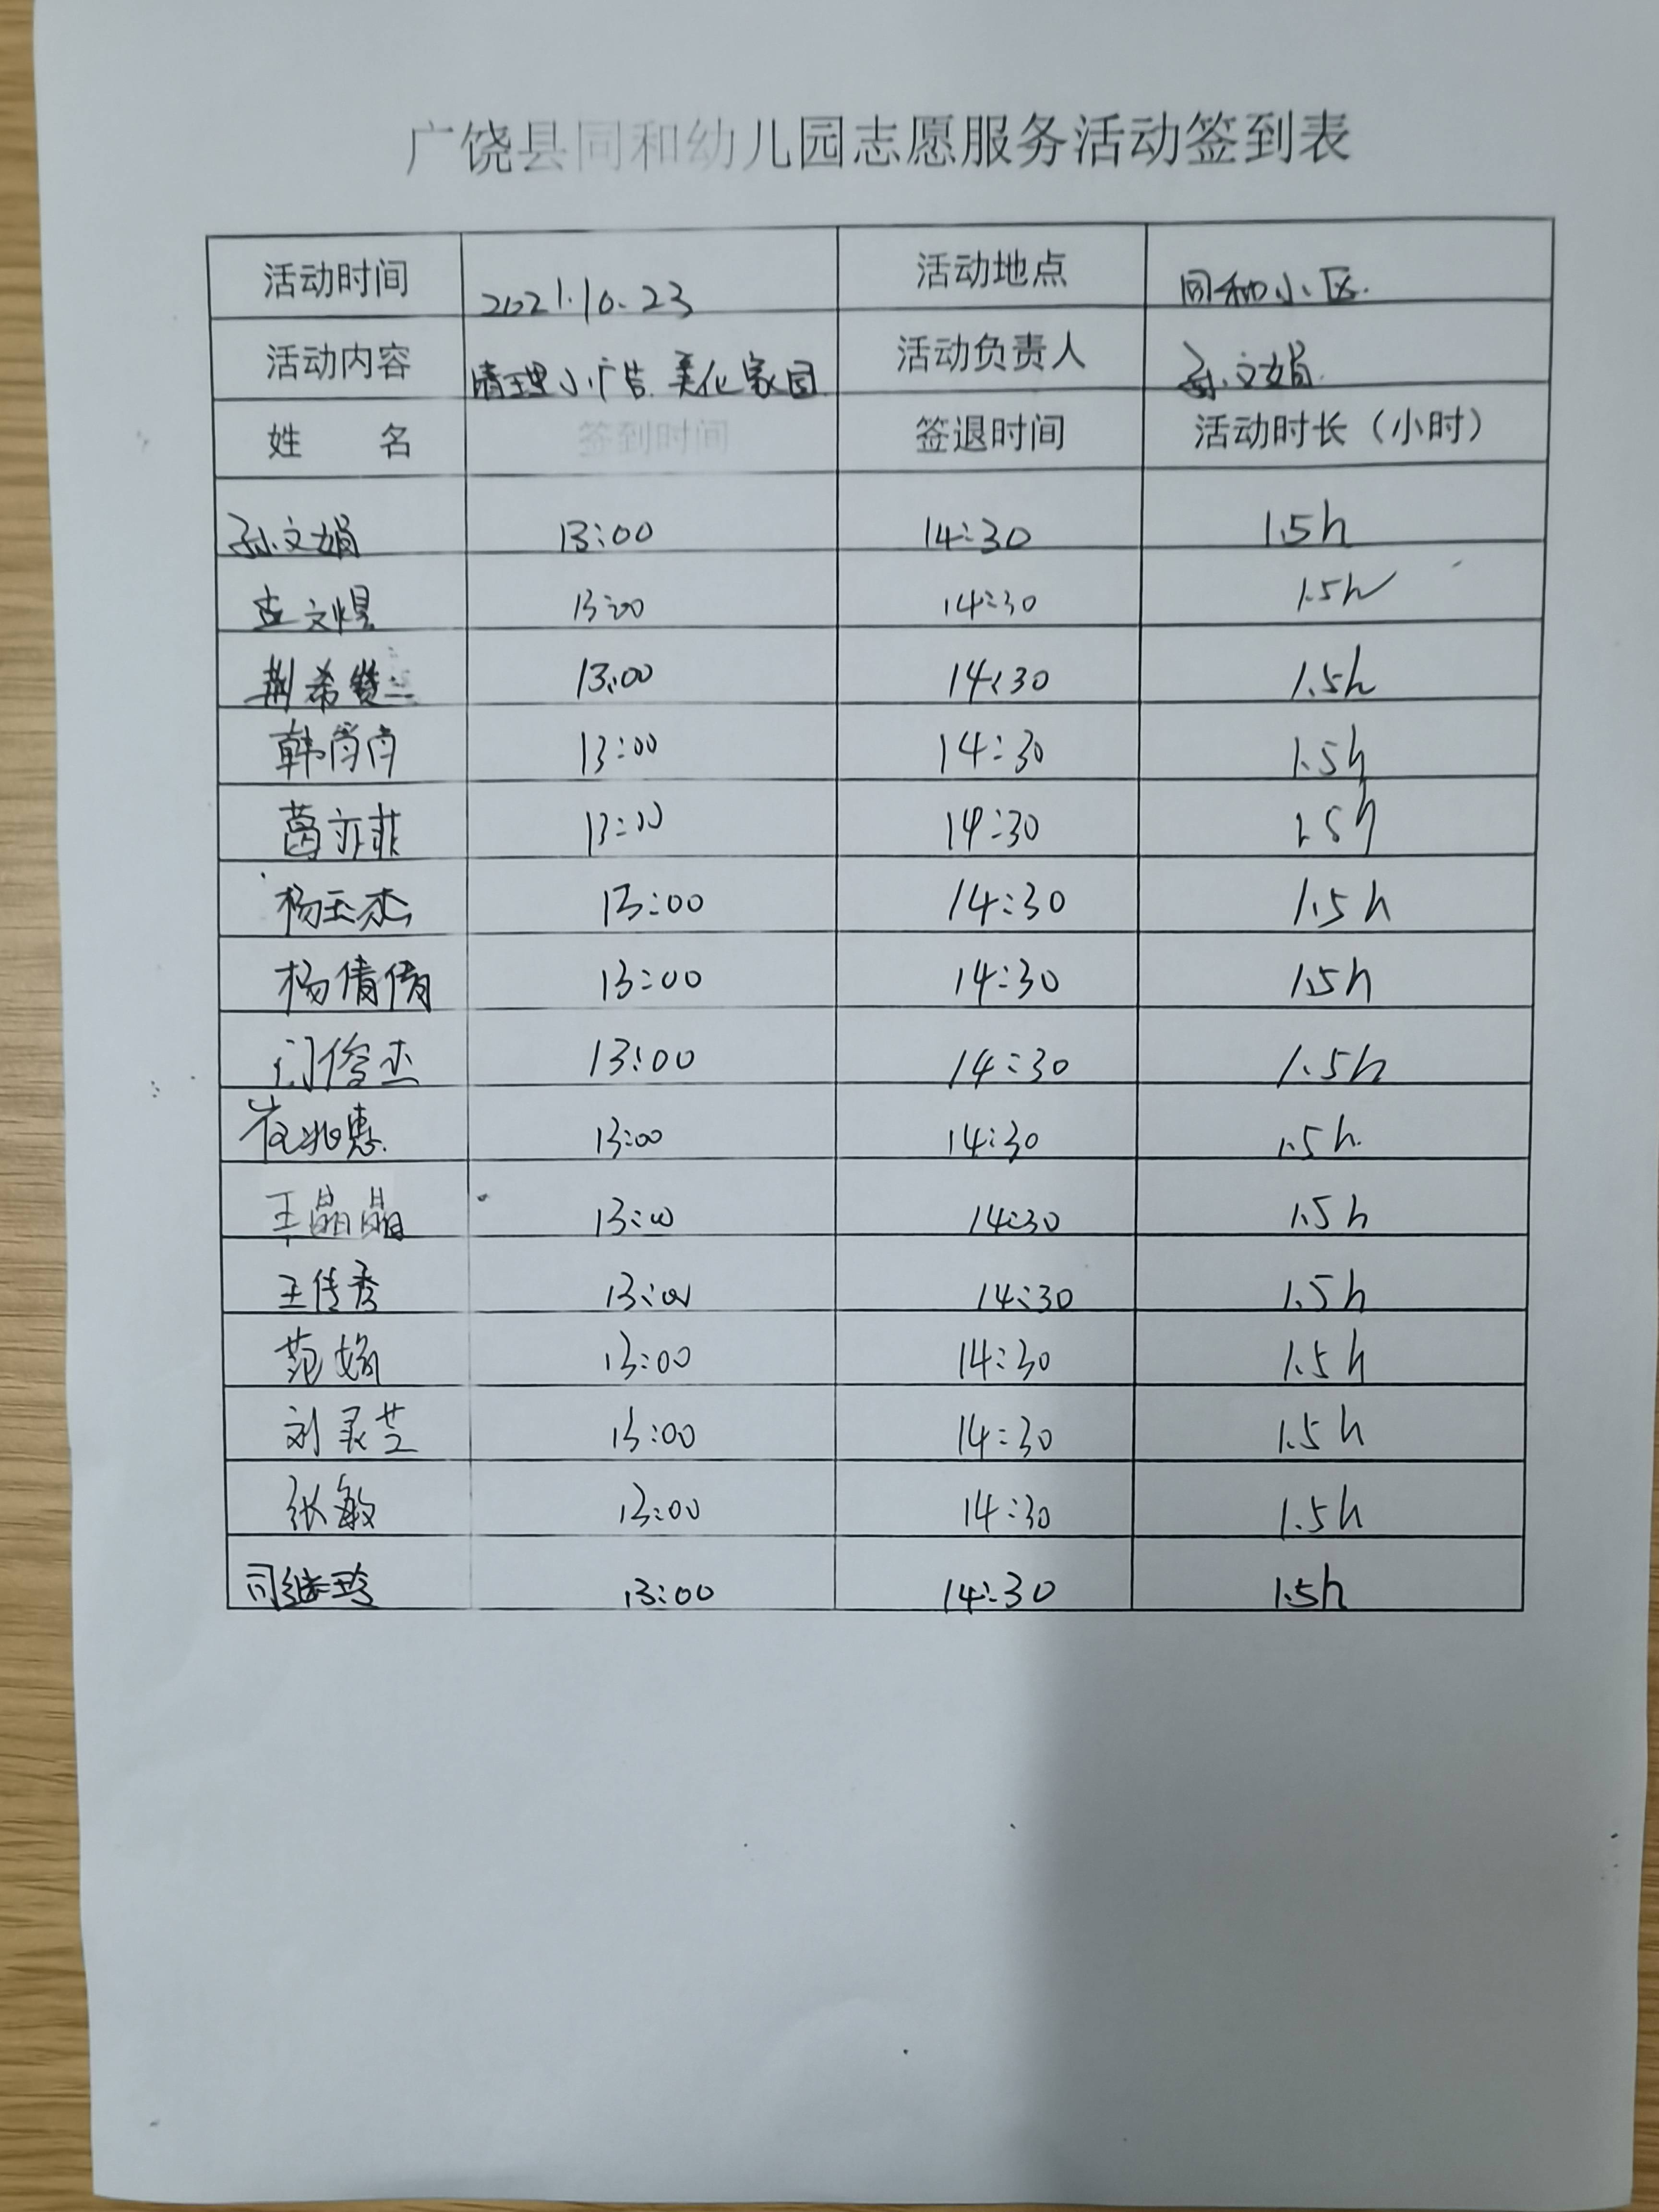 广饶县同和幼儿园志愿服务活动签到表
活动时间 2021.10.23 活动地点 同和小区.
活动内容 清理小广告 美化家园 活动负责人 孙文娟.
姓 名 签到时间 签退时间 活动时长（小时）
孙文娟 13:00 14:30 1.5h
文煜 13:00 14:30 1.5h
荆希 13:00 14:30 1.5h
韩肖肖 13:00 14:30 1.5h
葛亦菲 13:00 14:30 1.5h
杨玉杰 13:00 14:30 1.5h
杨倩倩 13:00 14:30 1.5h
门俊杰 13:00 14:30 1.5h
崔兆惠. 13:00 14:30 1.5h.
王晶晶 13:00 14:30 1.5h
王传秀 13:00 14:30 1.5h
范娟 13:00 14:30 1.5h
刘灵芝 13:00 14:30 1.5h
张敏 13:00 14:30 1.5h
司继玲 13:00 14:30 1.5h